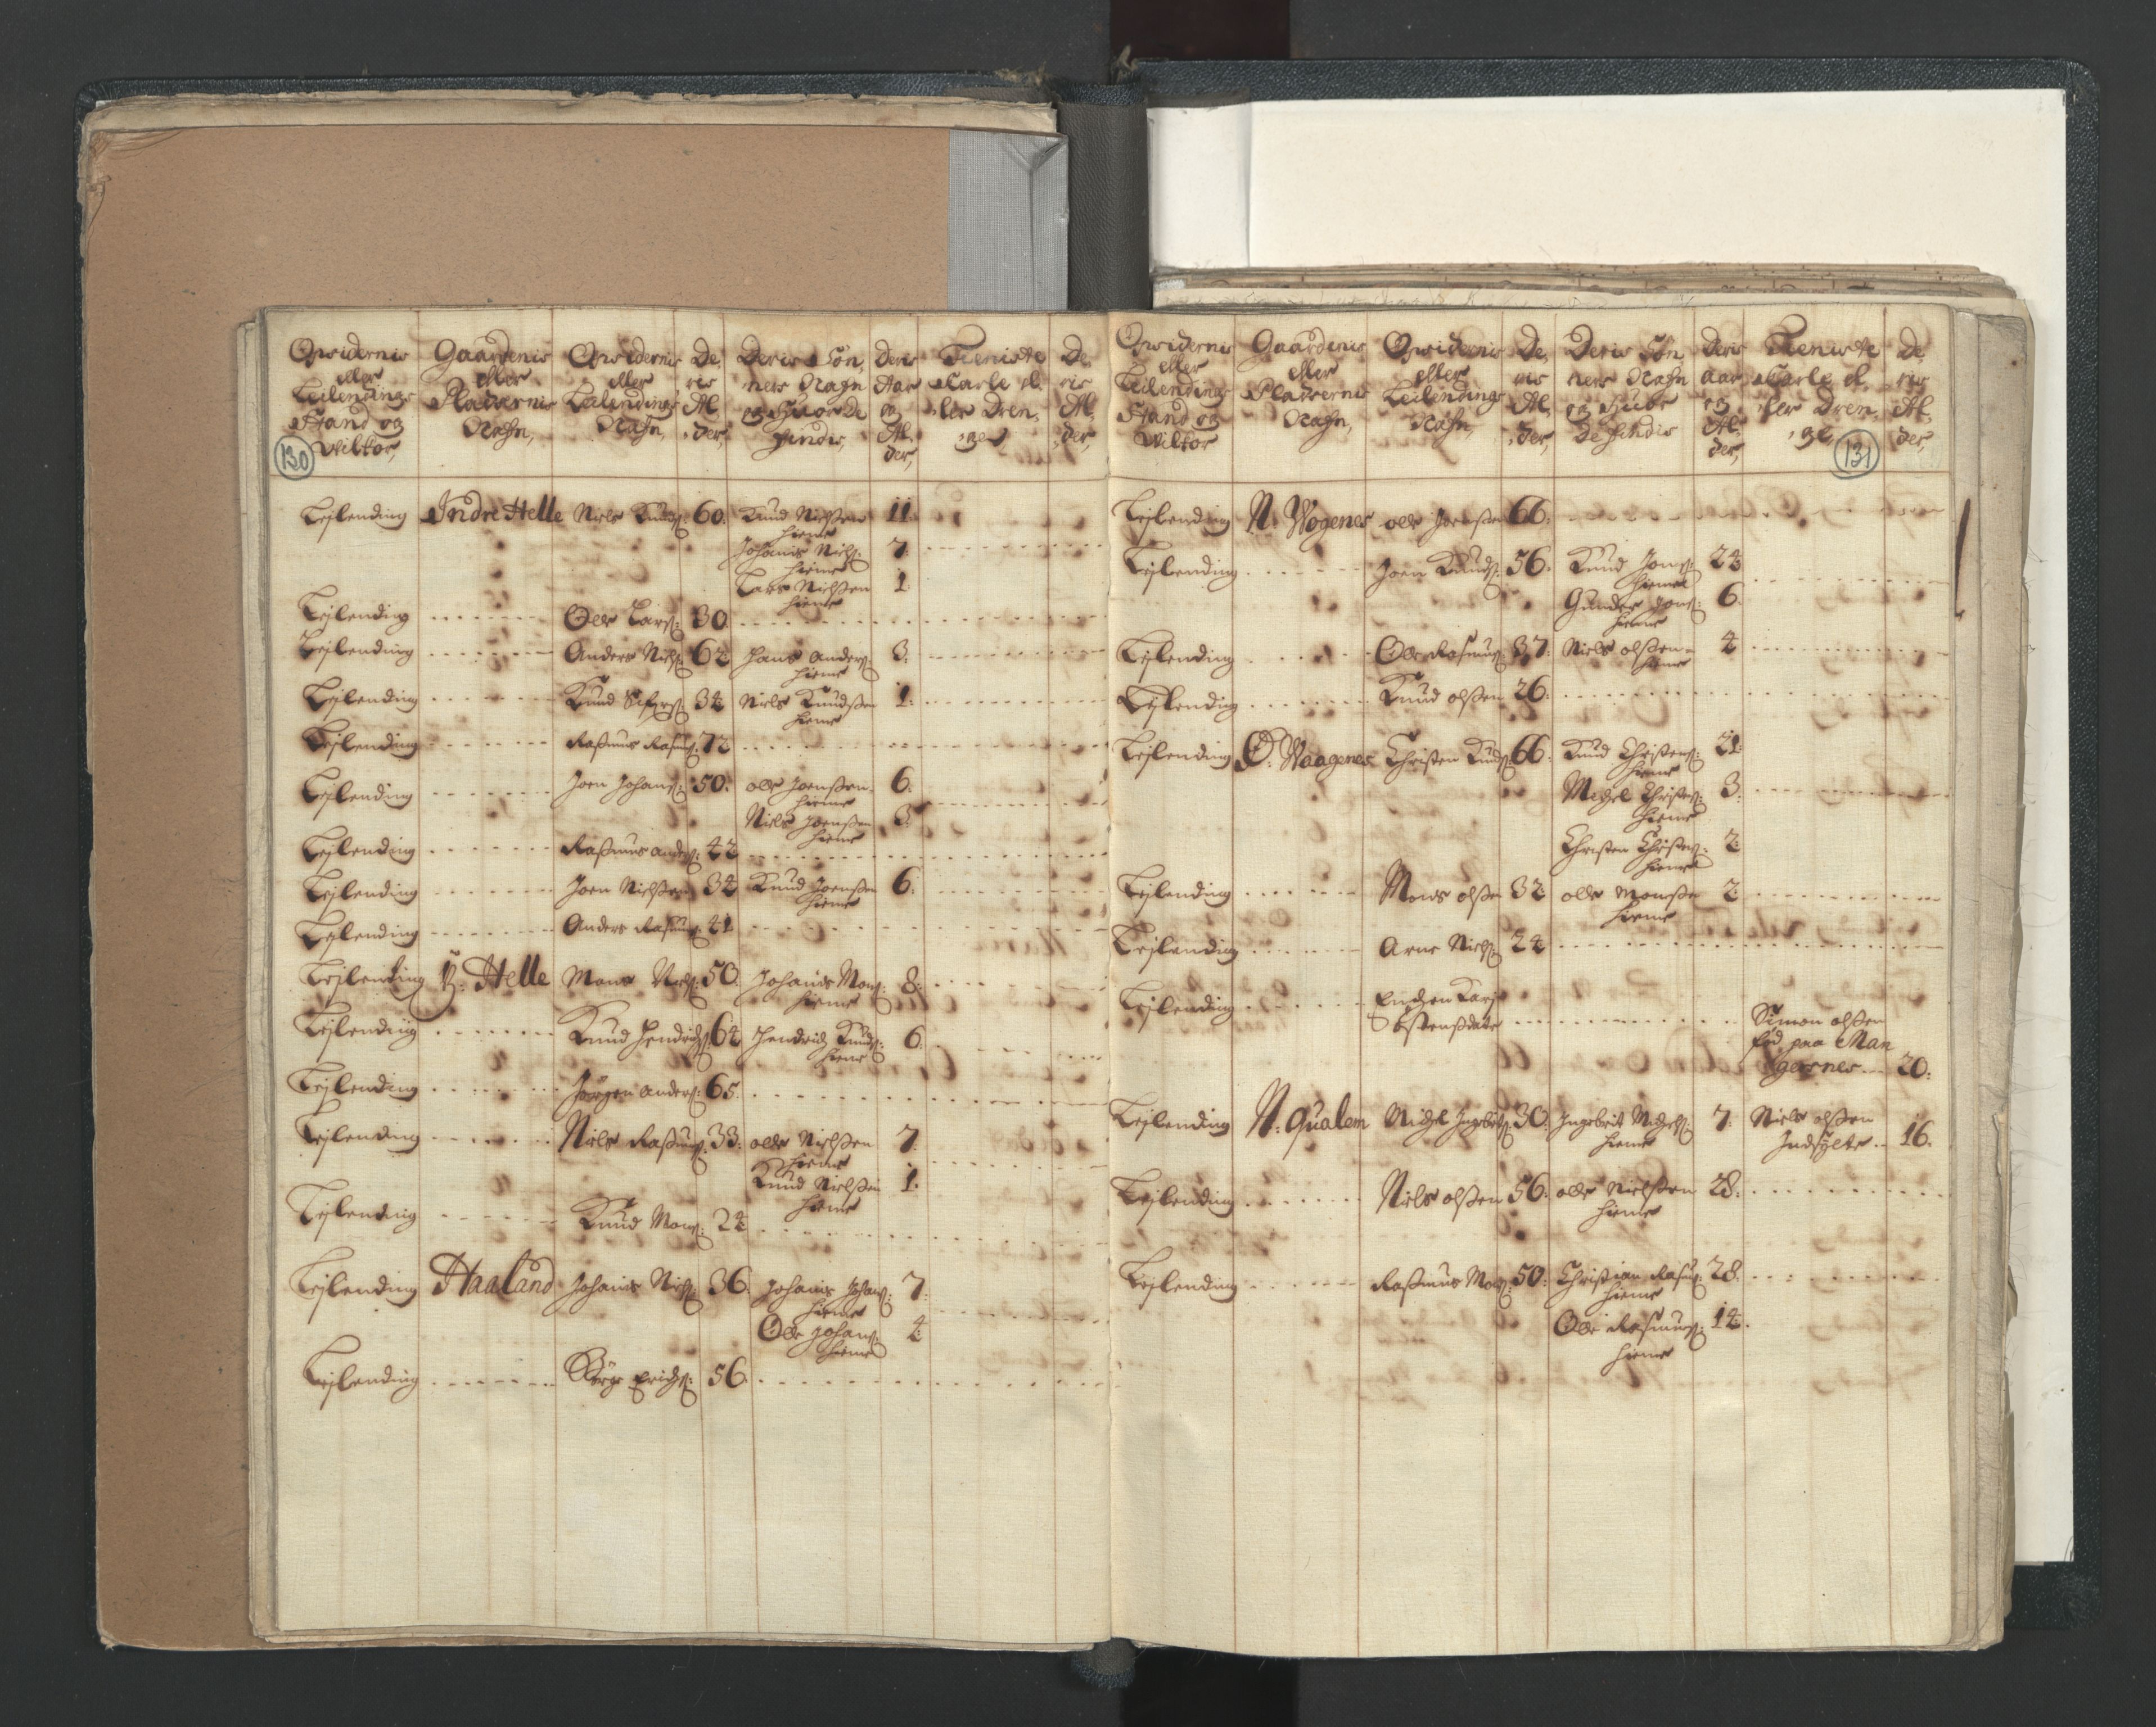 Opsidernis eller Leilendings Stand og Wilkor, Gaardenis eller Pladzernis Nafn, Opsidernis eller Leilendings Nafn, De- ris Al- der, Deris Søn- ners Nafn og Huor de findis, Deris Aar og Al- der, Tieniste Karle el- ler Dren- ge De- ris Al- der,
130
Lejlending Indre Helle Niels Knuds: 60. Knud Nielssen 11
hieme
Johanis Niels: 7.
hieme
Lars Nielssen 1
hieme
Lejlending Olle Lars: 30
Lejlending Anders Niels: 62 Hans Anders: 3.
hieme
Lejlending Knud Sifers: 34 Niels Knudssen 1.
hieme
Lejlending Rasmus Rasmus: 72
Lejlending Joen Johans: 50. olle Joenssen 6.
hieme
Niels Joenssen 3.
hieme
Lejlending Rasmus anders: 42
Lejlending Joen Nielssen 34 Knud Joenssen 6.
hieme
Lejlending Anders Rasmus: 41
Lejlending Y: Helle Mons Niels: 50. Johanis Mons: 8.
hieme
Lejlending Knud Hendrichs: 64 Hendrich Knuds: 6.
hieme
Lejlending Jørgen anders: 65.
Lejlending Niels Rasmus: 33. olle Nielssen 7.
hieme
Knud Nielssen 1.
hieme
Lejlending Knud Mons: 24
Lejlending Haaland Johanis Niels: 36. Johanis Johans: 7.
hieme
Olle Johans: 4
hieme
Lejlending Børge Erichs: 56.
Opsidernis eller Leilendings Stand og Wilkor Gaardenis eller Pladzernis Nafn, Opsidernis eller Leilendings Nafn, De- ris Al- der, Deris Søn- ners Nafn og Huor de findis Deris aar og Al- der, Tieniste Karle el- ler Dren- ge, De- ris Al- der,
131
Lejlending N. Wogenes olle Joenssen 66.
Lejlending Joen Knuds: 56. Knud Jons: 24
hieme
Gunder Jons: 6.
hieme
Lejlending Olle Rasmus: 37. Niels olssen 4
hieme
Lejlending Knud olssen 26.
Lejlending Ø. Waagenes Christen Knuds: 66. Knud Christens: 21.
hieme
Michel Christens: 3.
hieme
Christen Christens: 2.
hieme
Lejlending Mons olssen 32 olle Monssen 2
hieme
Lejlending Arne Niels: 24
Lejlending
Simon olssen
fød paa Man
gersnes 20.
Lejlending N. Qualem Michel Ingebrets: 30. Ingebrit Michels: 7. Niels olssen
hieme Indsylte 16.
Lejlending Niels olssen 56. olle Nielssen 28.
hieme
Lejlending Rasmus Mons: 50. Christian Rasmus: 28.
hieme
Olle Rasmus: 14.
hieme